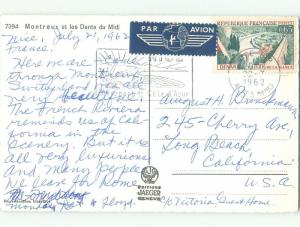 7394 Montreux et les Dents du Midi
PAR AVION
RÉPUBLIQUE FRANÇAISE
0,65
DINAN
NICE
1962
Côte d'Azur
Nice, July 21, 1962
France.
Here we are
through Montreux
Switzerland
very beautiful. The
French Riviera
reminds us of Cali-
fornia in the
Scenery. But it is
all very luxurious
And many people
We leave for Rome
Monday
August H. Brinkmann
245 Cherry Ave,
Long Beach
California
U.S.A
c/o Victoria Guest Home.
EDITIONS
JAEGER
GENÈVE